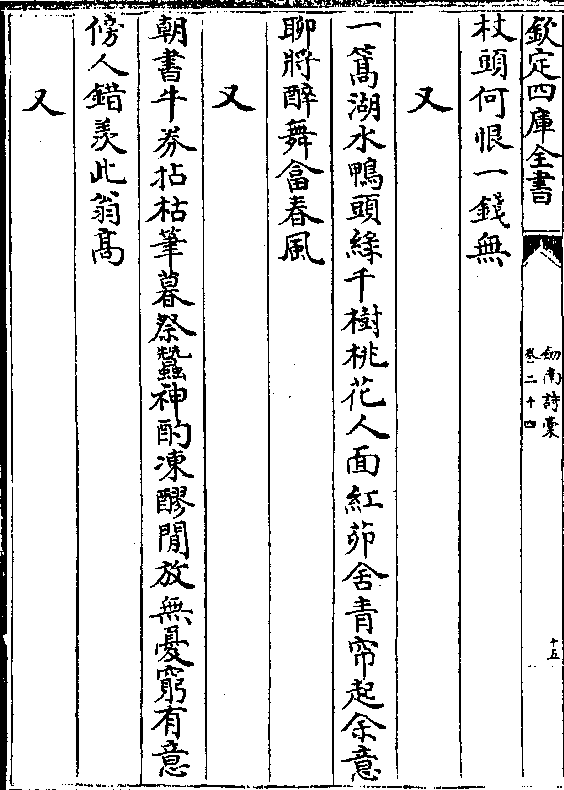 欽定四庫全書
劍南詩稾
卷二十四
十五
杖頭何恨一錢無
又
一篙湖水鴨頭緑千樹桃花人面紅茆舍青帘起余意
聊將醉舞畣春風
又
朝書牛券拈枯筆暮祭蠶神酌凍醪閒放無憂窮有意
傍人錯羡此翁髙
又